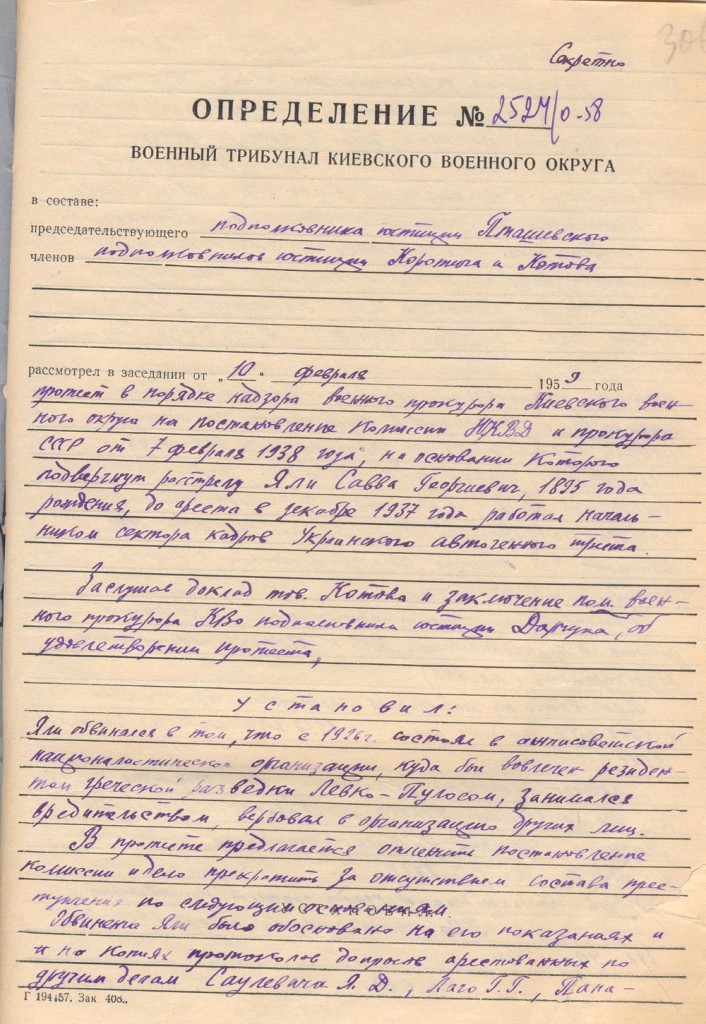 306
Секретно
ОПРЕДЕЛЕНИЕ № 2524/0-58
ВОЕННЫЙ ТРИБУНАЛ КИЕВСКОГО ВОЕННОГО ОКРУГА
в составе:
председательствующего подполковника юстиции Пташевского
членов подполковников юстиции Коротыча и Котова
рассмотрел в заседании от „10" февраля 1959 года
протест в порядке надзора военного прокурора Киевского воен-
ного округа на постановление Комиссии НКВД и прокурора
СССР от 7 февраля 1938 года, на основании которого
подвергнут расстрелу Яли Савва Георгиевич, 1895 года
рождения, до ареста в декабре 1937 года работал началь-
ником сектора кадров Украинского автогенного треста.
Заслушав доклад тов. Котова и заключение пом. воен-
ного прокурора КВО подполковника юстиции об
удовлетворении протеста,
Установил:
Яли обвинялся в том, что с 1926 г. состоял в антисоветской
националистической организации, куда был вовлечен резиден-
том греческой разведки Левко-Пулосом, занимался
вредительством, вербовал в организацию других лиц.
В протесте предлагается отменить постановление
комиссии и дело прекратить за отсутствием состава прес-
тупления по следующим основаниям.
Обвинение Яли было обосновано на его показаниях и
и на копиях протоколов допросов арестованных по
другим делам Саулевича Я. Д., Лаго Г. Г., Пана-
Г 194457. Зак 408.